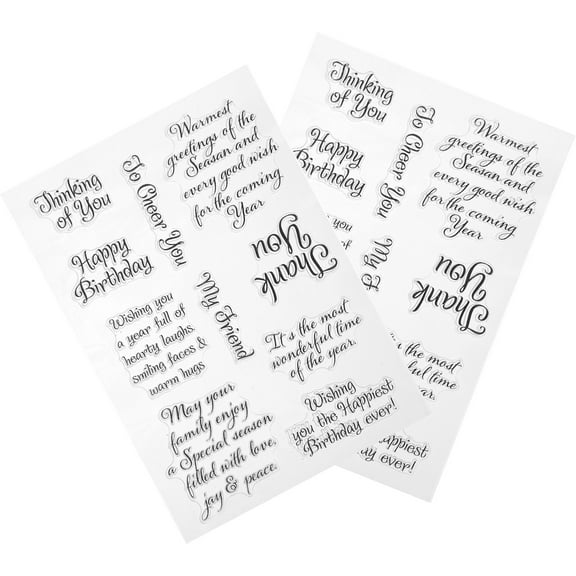 Thinking
of You
To Cheer You
Warmest
greetings of the
Seasan and
every good wish
for the coming
Year
Happy
Birthday
My Friend
Thank
You
Wishing you
a year full of
hearty laughs,
smiling faces &
warm hugs
It's the most
wonderful time
of the year.
May your
family enjoy
a Special season
filled with love,
jay & peace.
Wishing
you the Happiest
Birthday ever!
Thinking
of You
To Cheer You
Warmest
greetings of the
Seasan and
every good wish
for the coming
Year
Happy
Birthday
My F
Thank
You
you
of
the most
ful time
year.
appiest
ever!